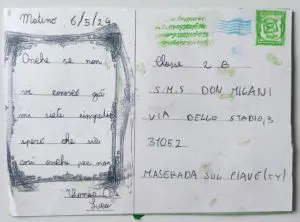 Matino 6/5/24
Anche se non
vi conosco già
mi siete simpatici
spero che sia
così anche per voi
Thomas
Luca
Classe 2 B
S.M.S DON MILANI
VIA DELLO STADIO,3
31052
MASERADA SUL PIAVE (TV)